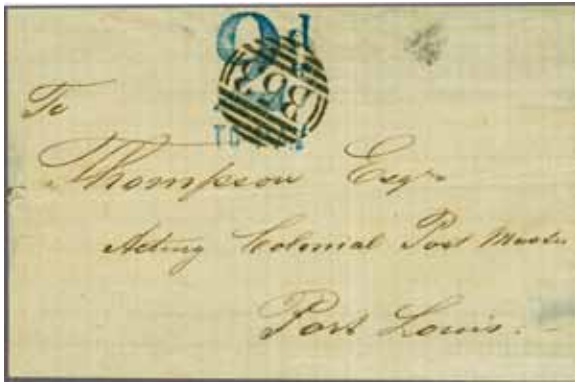 9d
B53
To
Thompson Esqr
Acting Colonial Post Master
Port Louis.